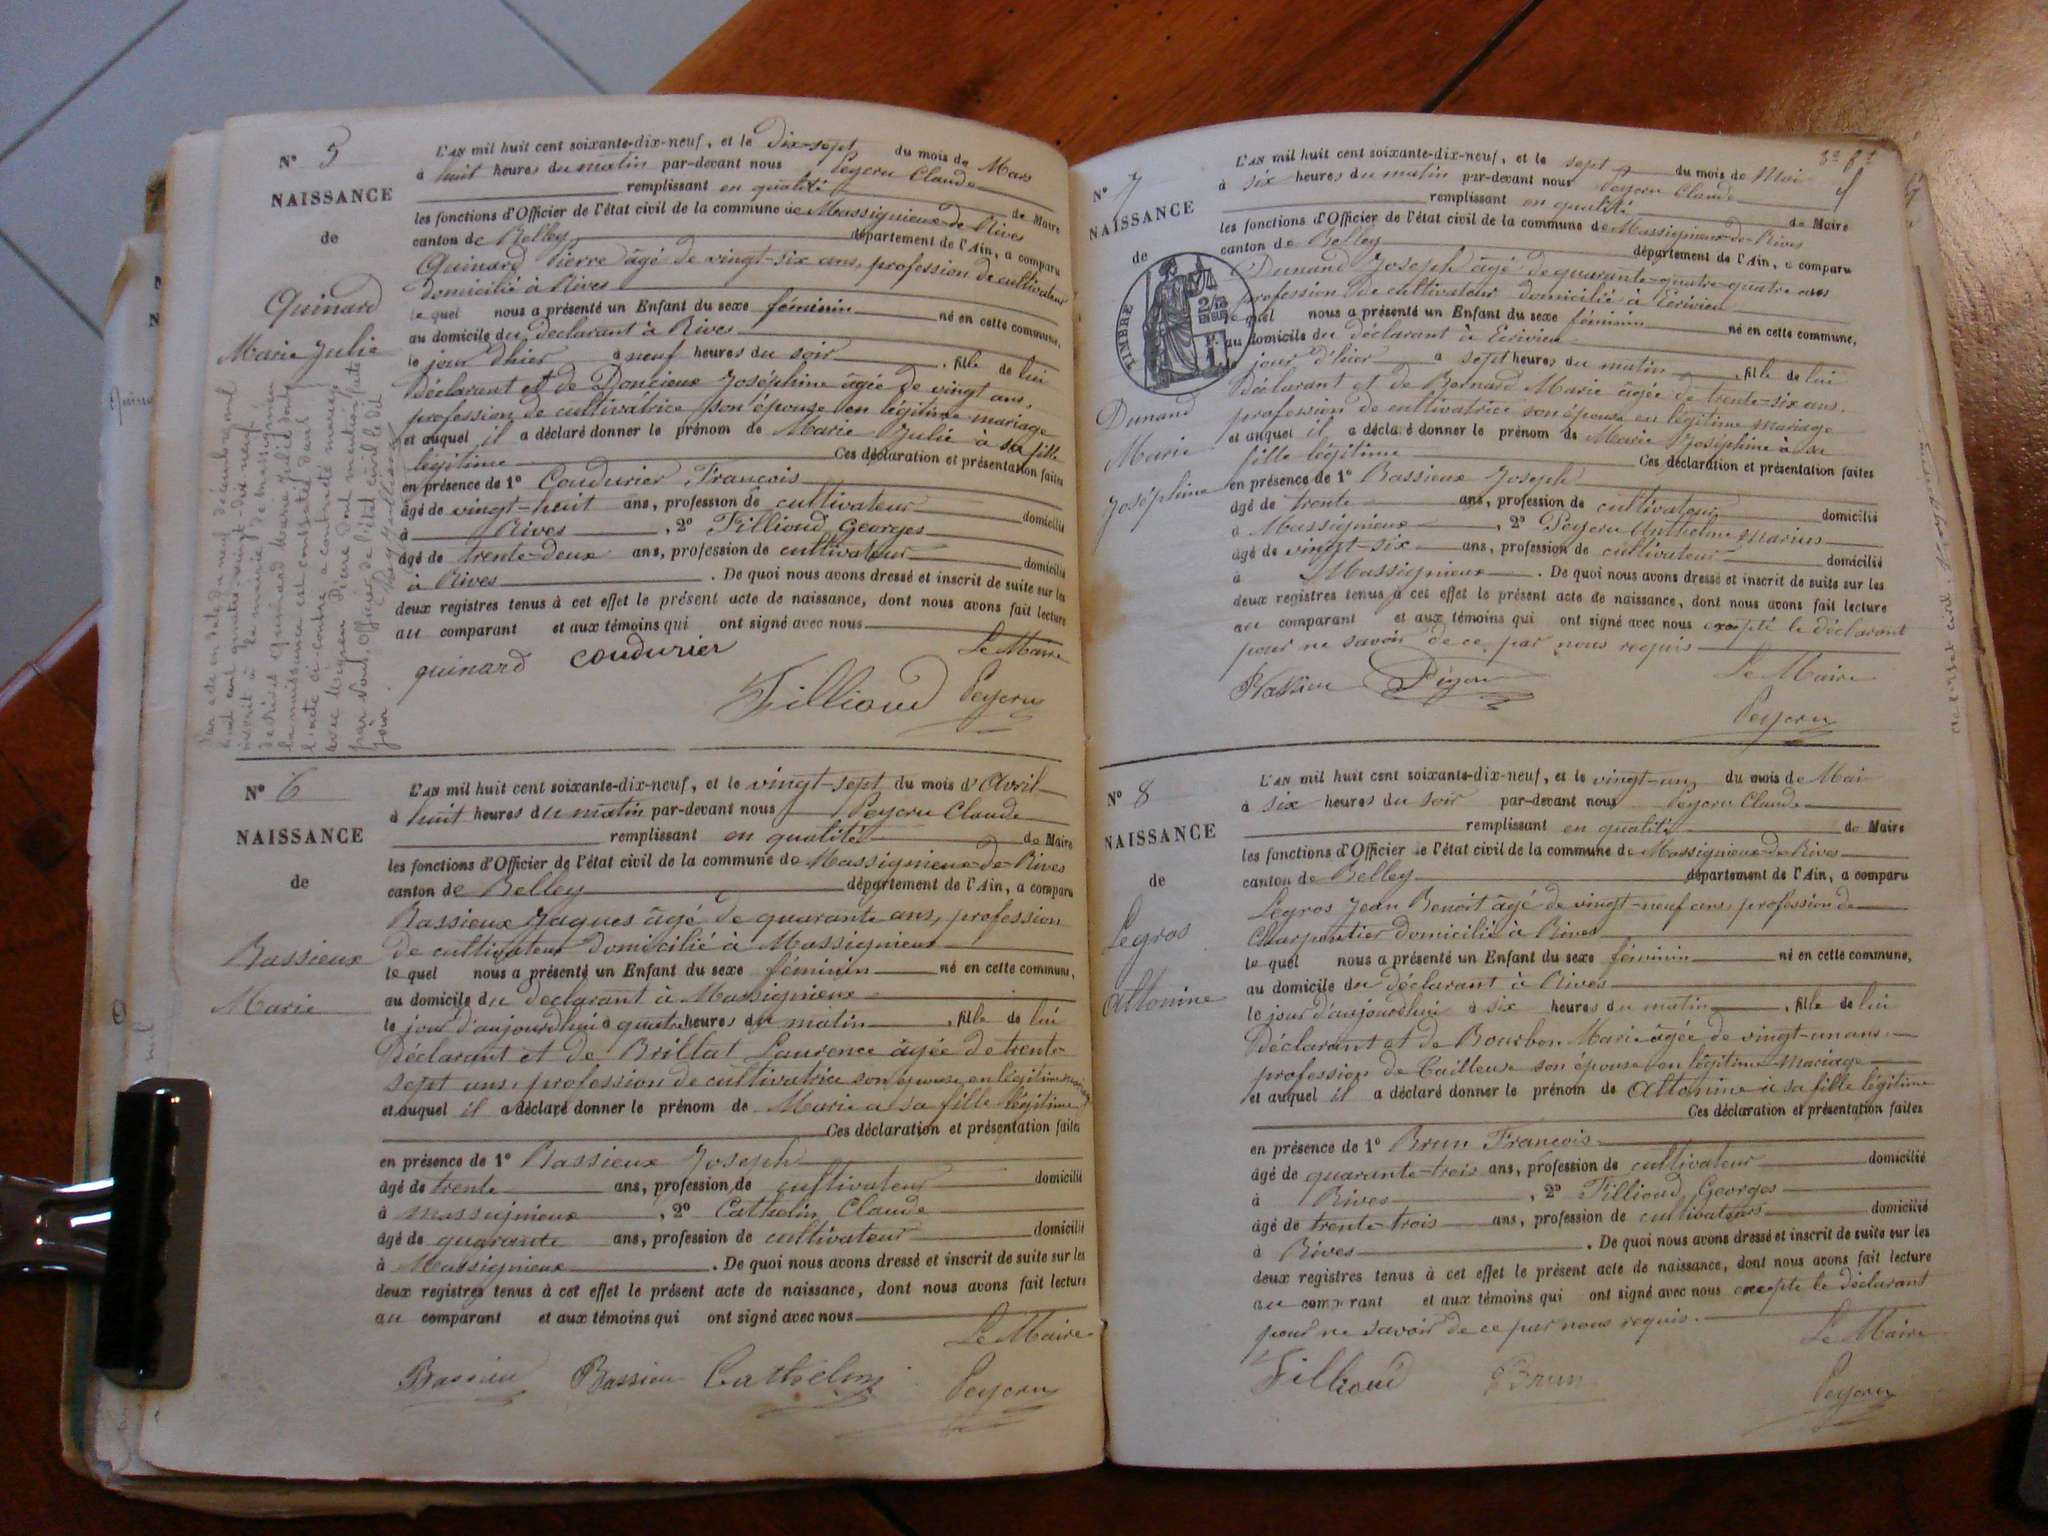 N° 5
NAISSANCE
de
Quinard
Marie Julie
L'AN mil huit cent soixante-dix-neuf, et le Dix-sept du mois de Mars
à huit heures du matin par-devant nous Peycru Claude
remplissant en qualité de Maire
les fonctions d'Officier de l'état civil de la commune de Massignieux-de-Rives
canton de Belley département de l'Ain, a comparu
Quinard Pierre âgé de vingt-six ans, profession de cultivateur
domicilié à Rives
le quel nous a présenté un Enfant du sexe féminin né en cette commune,
au domicile du déclarant à Rives
le jour d'hier à neuf heures du soir, fille de lui
Déclarant et de Doncieux Joséphine âgée de vingt ans,
profession de cultivatrice son épouse en légitime mariage
et auquel il a déclaré donner le prénom de Marie Julie à sa fille
légitime Ces déclaration et présentation faites
en présence de 1° Coudurier François
âgé de vingt-huit ans, profession de cultivateur domicilié
à Rives, 2° Fillioud Georges
âgé de trente-deux ans, profession de cultivateur domicilié
à Rives. De quoi nous avons dressé et inscrit de suite sur les
deux registres tenus à cet effet le présent acte de naissance, dont nous avons fait lecture
au comparant et aux témoins qui ont signé avec nous
Le Maire
quinard coudurier
Fillioud Peycru
Par acte en date du neuf décembre mil
huit cent quatre-vingt-dix-neuf
inscrit à la mairie de massignieu
de Rives quinard Marie Julie dont
la naissance est constatée dans
l'acte ci-contre a contracté mariage
avec Pierre dont mention faite
par Nous, Officier de l'état civil le dit
jour.
N° 6
NAISSANCE
de
Bassieux
Marie
L'AN mil huit cent soixante-dix-neuf, et le vingt-sept du mois d'Avril
à huit heures du matin par-devant nous Peycru Claude
remplissant en qualité de Maire
les fonctions d'Officier de l'état civil de la commune de Massignieux-de-Rives
canton de Belley département de l'Ain, a comparu
Bassieux Jaques âgé de quarante ans, profession
de cultivateur domicilié à Massignieux
le quel nous a présenté un Enfant du sexe féminin né en cette commune,
au domicile du déclarant à Massignieux
le jour d'aujourd'hui à quatre heures du matin, fille de lui
Déclarant et de Brillat Laurence âgée de trente-
sept ans, profession de cultivatrice son épouse en légitime mariage
et auquel il a déclaré donner le prénom de Marie a sa fille légitime
Ces déclaration et présentation faites
en présence de 1° Bassieux Joseph
âgé de trente ans, profession de cultivateur domicilié
à massignieux, 2° Cathelin Claude
âgé de quarante ans, profession de cultivateur domicilié
à Massignieux. De quoi nous avons dressé et inscrit de suite sur les
deux registres tenus à cet effet le présent acte de naissance, dont nous avons fait lecture
au comparant et aux témoins qui ont signé avec nous
Le Maire
Bassieu Bassieu Cathelin Peycru
N° 7
NAISSANCE
de
TIMBRE
2/10
EN SUS
Dunand
Marie
Joséphine
L'AN mil huit cent soixante-dix-neuf, et le sept du mois de Mai
à six heures du matin par-devant nous Peycru Claude
remplissant en qualité de Maire
les fonctions d'Officier de l'état civil de la commune de Massignieux-de-Rives
canton de Belley département de l'Ain, a comparu
Dunand Joseph âgé de quarante-quatre quatre ans
profession de cultivateur domicilié à Ecrivieu
le quel nous a présenté un Enfant du sexe féminin né en cette commune,
au domicile du déclarant à Ecrivieu
jour d'hier à sept heures du matin, fille de lui
Déclarant et de Bernard Marie âgée de trente-six ans,
profession de cultivatrice son épouse en légitime mariage
et auquel il a déclaré donner le prénom de Marie Joséphine à sa
fille légitime Ces déclaration et présentation faites
en présence de 1° Bassieux Joseph
âgé de trente ans, profession de cultivateur domicilié
à Massignieux, 2° Peycru Anthelme Marius
âgé de vingt-six ans, profession de cultivateur domicilié
à Massignieux. De quoi nous avons dressé et inscrit de suite sur les
deux registres tenus à cet effet le présent acte de naissance, dont nous avons fait lecture
au comparant et aux témoins qui ont signé avec nous excepté le déclarant
pour ne savoir de ce par nous requis
Le Maire
Bassieu Peycru
Peycru
N° 8
NAISSANCE
de
Legros
Altonine
L'AN mil huit cent soixante-dix-neuf, et le vingt-un du mois de Mai
à six heures du soir par-devant nous Peycru Claude
remplissant en qualité de Maire
les fonctions d'Officier de l'état civil de la commune de Massignieux-de-Rives
canton de Belley département de l'Ain, a comparu
Legros Jean Benoit âgé de vingt-neuf ans, profession de
Charpentier domicilié à Rives
le quel nous a présenté un Enfant du sexe féminin né en cette commune,
au domicile du déclarant à Rives
le jour d'aujourd'hui à six heures du matin, fille de lui
Déclarant et de Bourbon Marie âgée de vingt-un ans
profession de Tailleuse son épouse en légitime mariage
et auquel il a déclaré donner le prénom de Altonine à sa fille légitime
Ces déclaration et présentation faites
en présence de 1° Brun François
âgé de quarante-trois ans, profession de cultivateur domicilié
à Rives, 2° Fillioud Georges
âgé de trente-trois ans, profession de cultivateurs domicilié
à Rives. De quoi nous avons dressé et inscrit de suite sur les
deux registres tenus à cet effet le présent acte de naissance, dont nous avons fait lecture
au comparant et aux témoins qui ont signé avec nous excepte le déclarant
pour ne savoir de ce par nous requis.
Le Maire
Fillioud Brun
Peycru